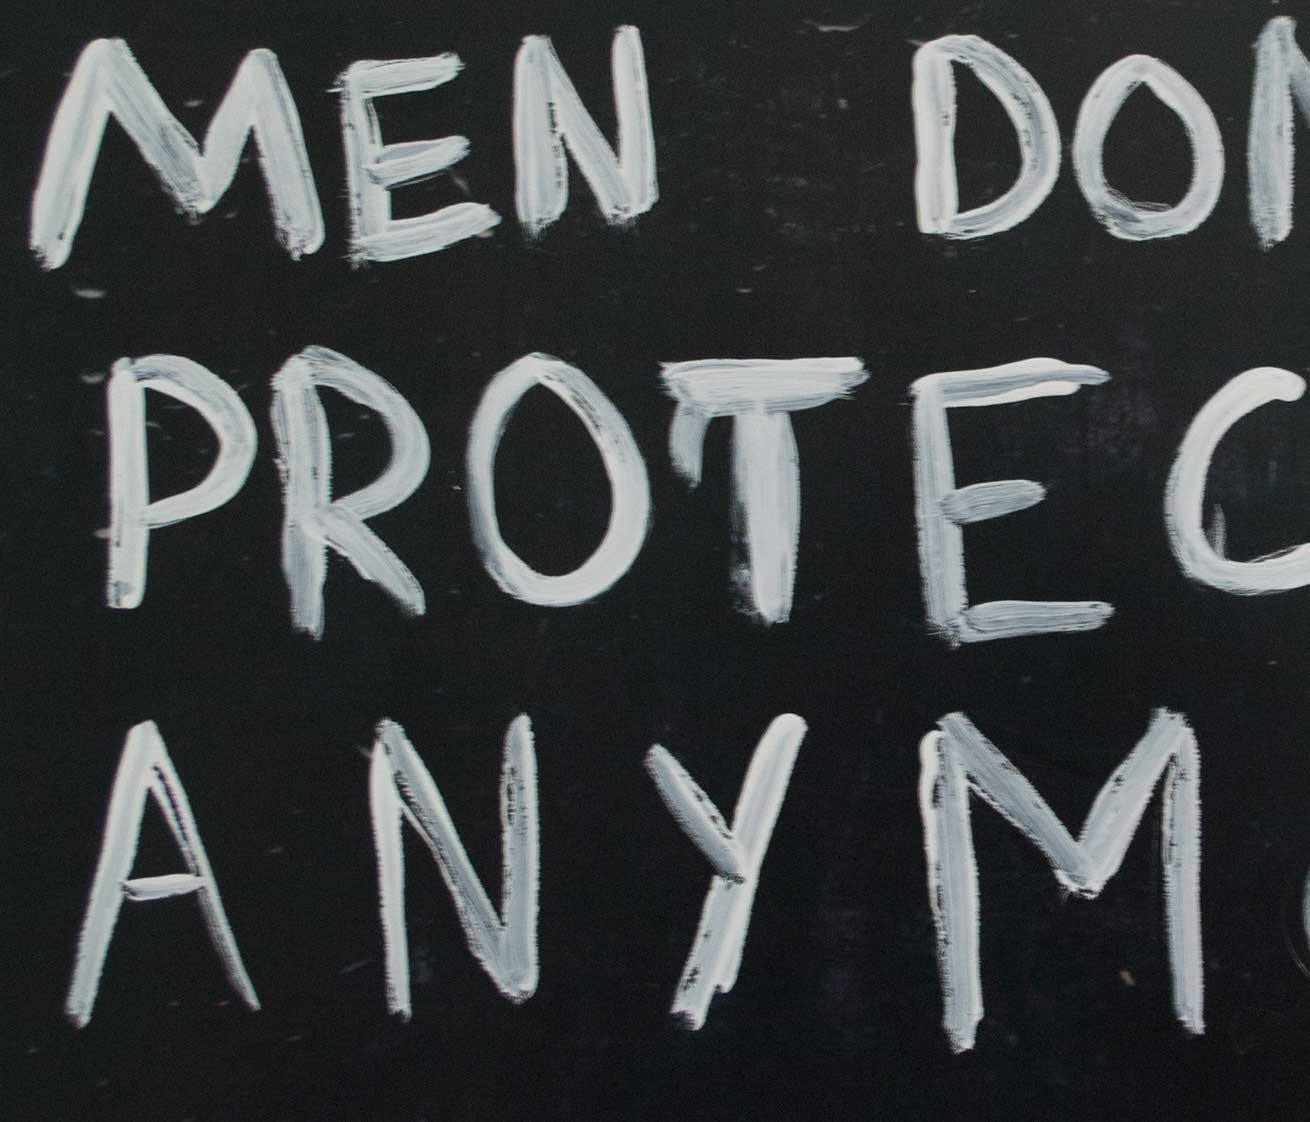 MEN DON
PROTEC
ANYM